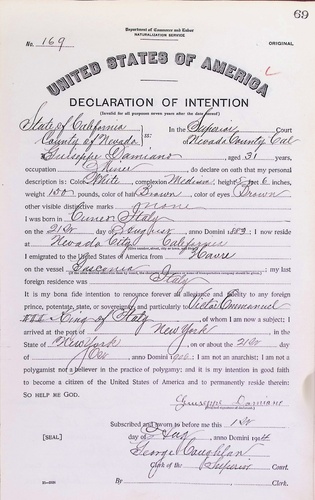 69
Department of Commerce and Labor
NATURALIZATION SERVICE
No. 169
ORIGINAL
UNITED STATES OF AMERICA
DECLARATION OF INTENTION
(Invalid for all purposes seven years after the date hereof)
State of California
In the Superior Court
County of Nevada ss:
Nevada County Cal
I, Guiseppe Damiano, aged 31 years,
occupation Miner, do declare on oath that my personal
description is: Color White, complexion Medium, height 5 feet 6 inches,
weight 150 pounds, color of hair Brown, color of eyes Brown
other visible distinctive marks none
I was born in Cuneo Italy
on the 21st day of August, anno Domini 1883; I now reside
at Nevada City California
I emigrated to the United States of America from Havre
on the vessel Gasconia; my last
foreign residence was Italy
It is my bona fide intention to renounce forever all allegiance and fidelity to any foreign
prince, potentate, state, or sovereignty, and particularly to Victor Emmanuel
King of Italy, of whom I am now a subject; I
arrived at the port of New York, in the
State of New York, on or about the 21st day
of, anno Domini; I am not an anarchist; I am not a
polygamist nor a believer in the practice of polygamy; and it is my intention in good faith
to become a citizen of the United States of America and to permanently reside therein:
SO HELP ME GOD.
Giuseppe Damiano
Subscribed and sworn to before me this 1st
[SEAL] day of Aug, anno Domini 1914
George Caughlan
Clerk of the Superior Court.
By, Clerk.